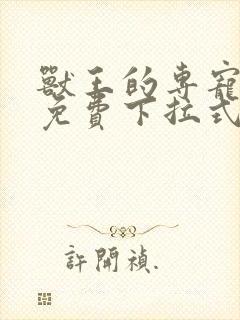 獸王的專寵
免費下拉式
許開禎.